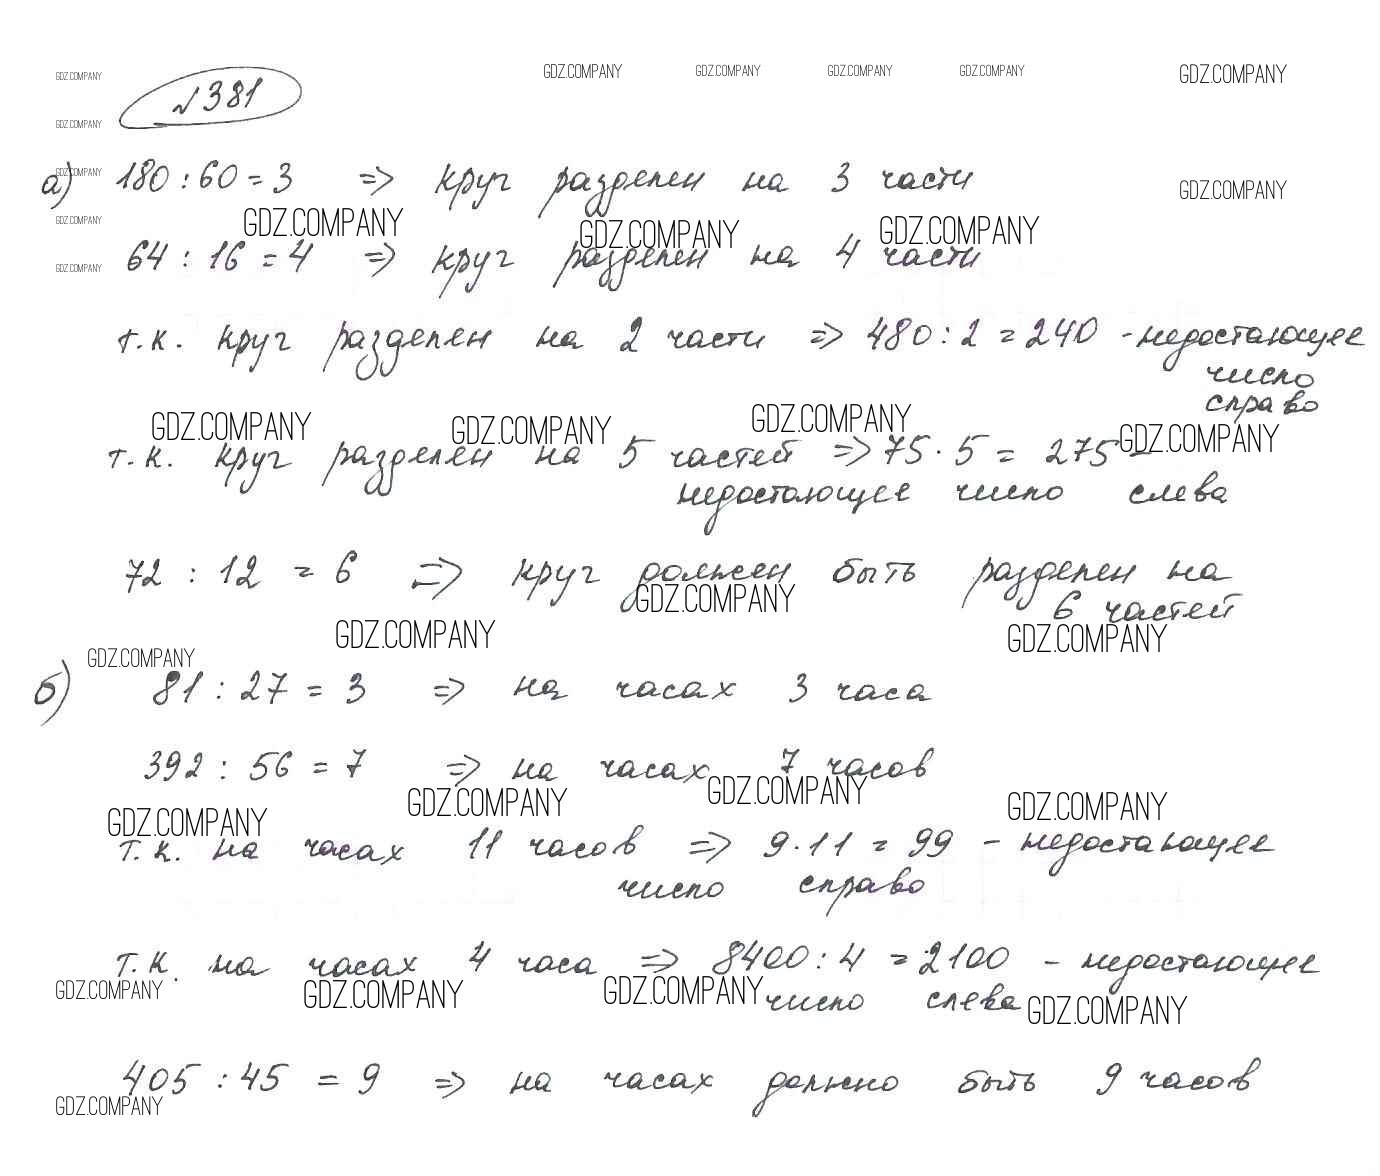 GDZ.COMPANY GDZ.COMPANY GDZ.COMPANY GDZ.COMPANY GDZ.COMPANY GDZ.COMPANY
№381
GDZ.COMPANY
а) 180 : 60 = 3 => круг разделен на 3 части
GDZ.COMPANY GDZ.COMPANY
GDZ.COMPANY GDZ.COMPANY GDZ.COMPANY GDZ.COMPANY
64 : 16 = 4 => круг разделен на 4 части
GDZ.COMPANY
т.к. круг разделен на 2 части => 480 : 2 = 240 - недостающее
число
справо
GDZ.COMPANY GDZ.COMPANY GDZ.COMPANY GDZ.COMPANY
т.к. круг разделен на 5 частей => 75 · 5 = 275 -
недостающее число слева
72 : 12 = 6 => круг должен быть разделен на
6 частей
GDZ.COMPANY GDZ.COMPANY GDZ.COMPANY
GDZ.COMPANY
б) 81 : 27 = 3 => на часах 3 часа
392 : 56 = 7 => на часах 7 часов
GDZ.COMPANY GDZ.COMPANY GDZ.COMPANY GDZ.COMPANY
т.к. на часах 11 часов => 9 · 11 = 99 - недостающее
число справо
т.к. на часах 4 часа => 8400 : 4 = 2100 - недостающее
число слева
GDZ.COMPANY GDZ.COMPANY GDZ.COMPANY GDZ.COMPANY
405 : 45 = 9 => на часах должно быть 9 часов
GDZ.COMPANY